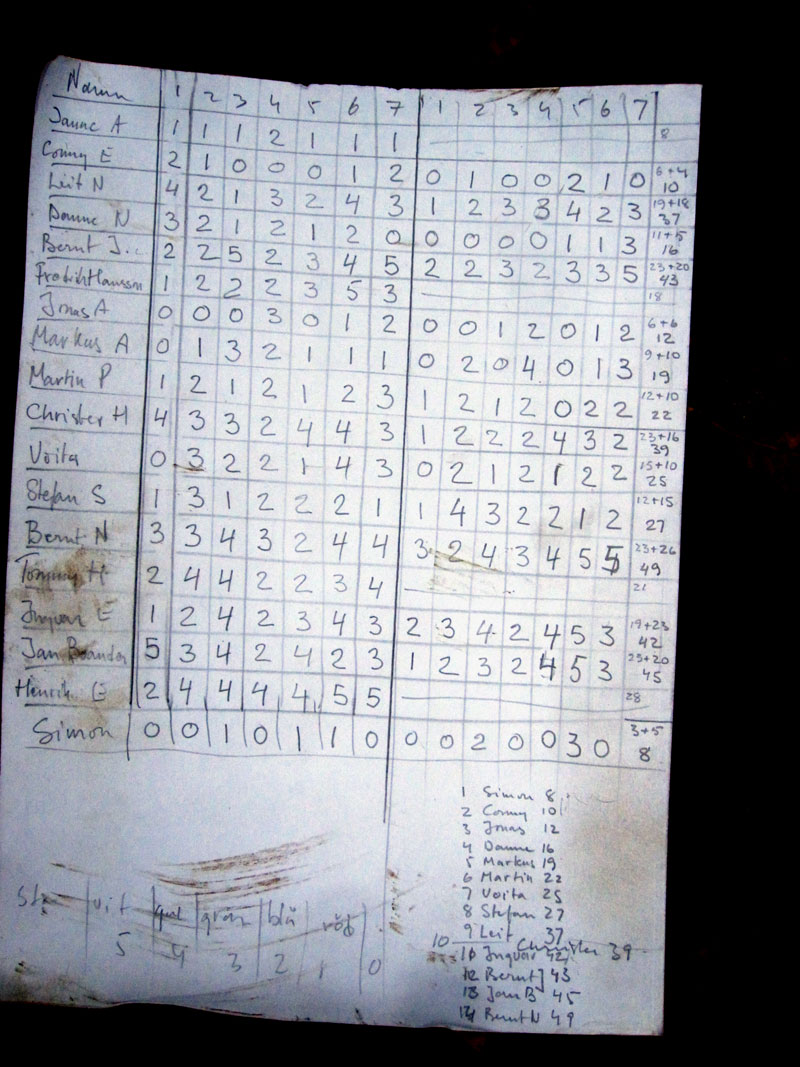 Namn 1 2 3 4 5 6 7 1 2 3 4 5 6 7
Janne A 1 1 1 2 1 1 1 — 8
Conny E 2 1 0 0 0 1 2 0 1 0 0 2 1 0 6+4 10
Leit N 4 2 1 3 2 4 3 1 2 3 3 4 2 3 19+18 37
Danne N 3 2 1 2 1 2 0 0 0 0 0 1 1 3 11+5 16
Bernt J. 2 2 5 2 3 4 5 2 2 3 2 3 3 5 23+20 43
Fredrik Hansson 1 2 2 2 3 5 3 — 18
Jonas A 0 0 0 3 0 1 2 0 0 1 2 0 1 2 6+6 12
Markus A 0 1 3 2 1 1 1 0 2 0 4 0 1 3 9+10 19
Martin P 1 2 1 2 1 2 3 1 2 1 2 0 2 2 12+10 22
Christer H 4 3 3 2 4 4 3 1 2 2 2 4 3 2 23+16 39
Voita 0 3 2 2 1 4 3 0 2 1 2 1 2 2 15+10 25
Stefan S 1 3 1 2 2 2 1 1 4 3 2 2 1 2 12+15 27
Bernt N 3 3 4 3 2 4 4 3 2 4 3 4 5 5 23+26 49
Tommy H 2 4 4 2 2 3 4 — 21
Ingvar E 1 2 4 2 3 4 3 2 3 4 2 4 5 3 19+23 42
Jan Brander 5 3 4 2 4 2 3 1 2 3 2 4 5 3 25+20 45
Henrik E 2 4 4 4 4 5 5 — 28
Simon 0 0 1 0 1 1 0 0 0 2 0 0 3 0 3+5 8
1 Simon 8
2 Conny 10
3 Jonas 12
4 Danne 16
5 Markus 19
6 Martin 22
7 Voita 25
8 Stefan 27
9 Leit 37
10 Christer 39
11 Ingvar 42
12 Bernt J 43
13 Jan B 45
14 Bernt N 49
vit gul grön blå röd
5 4 3 2 1 0